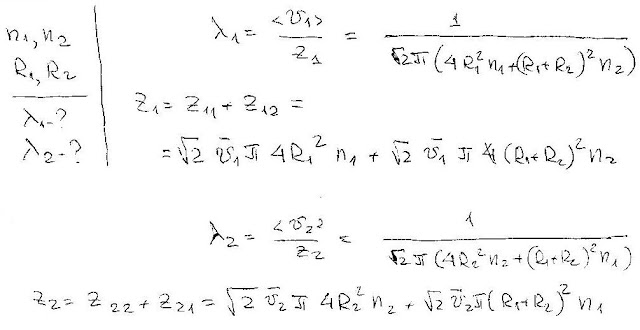 n₁, n₂
R₁, R₂
λ₁ - ?
λ₂ - ?
λ₁ = <υ₁> / z₁ = 1 / (√2 π (4R₁² n₁ + (R₁+R₂)² n₂))
z₁ = z₁₁ + z₁₂ =
= √2 ῡ₁ π 4R₁² n₁ + √2 ῡ₁ π (R₁+R₂)² n₂
λ₂ = <υ₂> / z₂ = 1 / (√2 π (4R₂² n₂ + (R₁+R₂)² n₁))
z₂ = z₂₂ + z₂₁ = √2 ῡ₂ π 4R₂² n₂ + √2 ῡ₂ π (R₁+R₂)² n₁